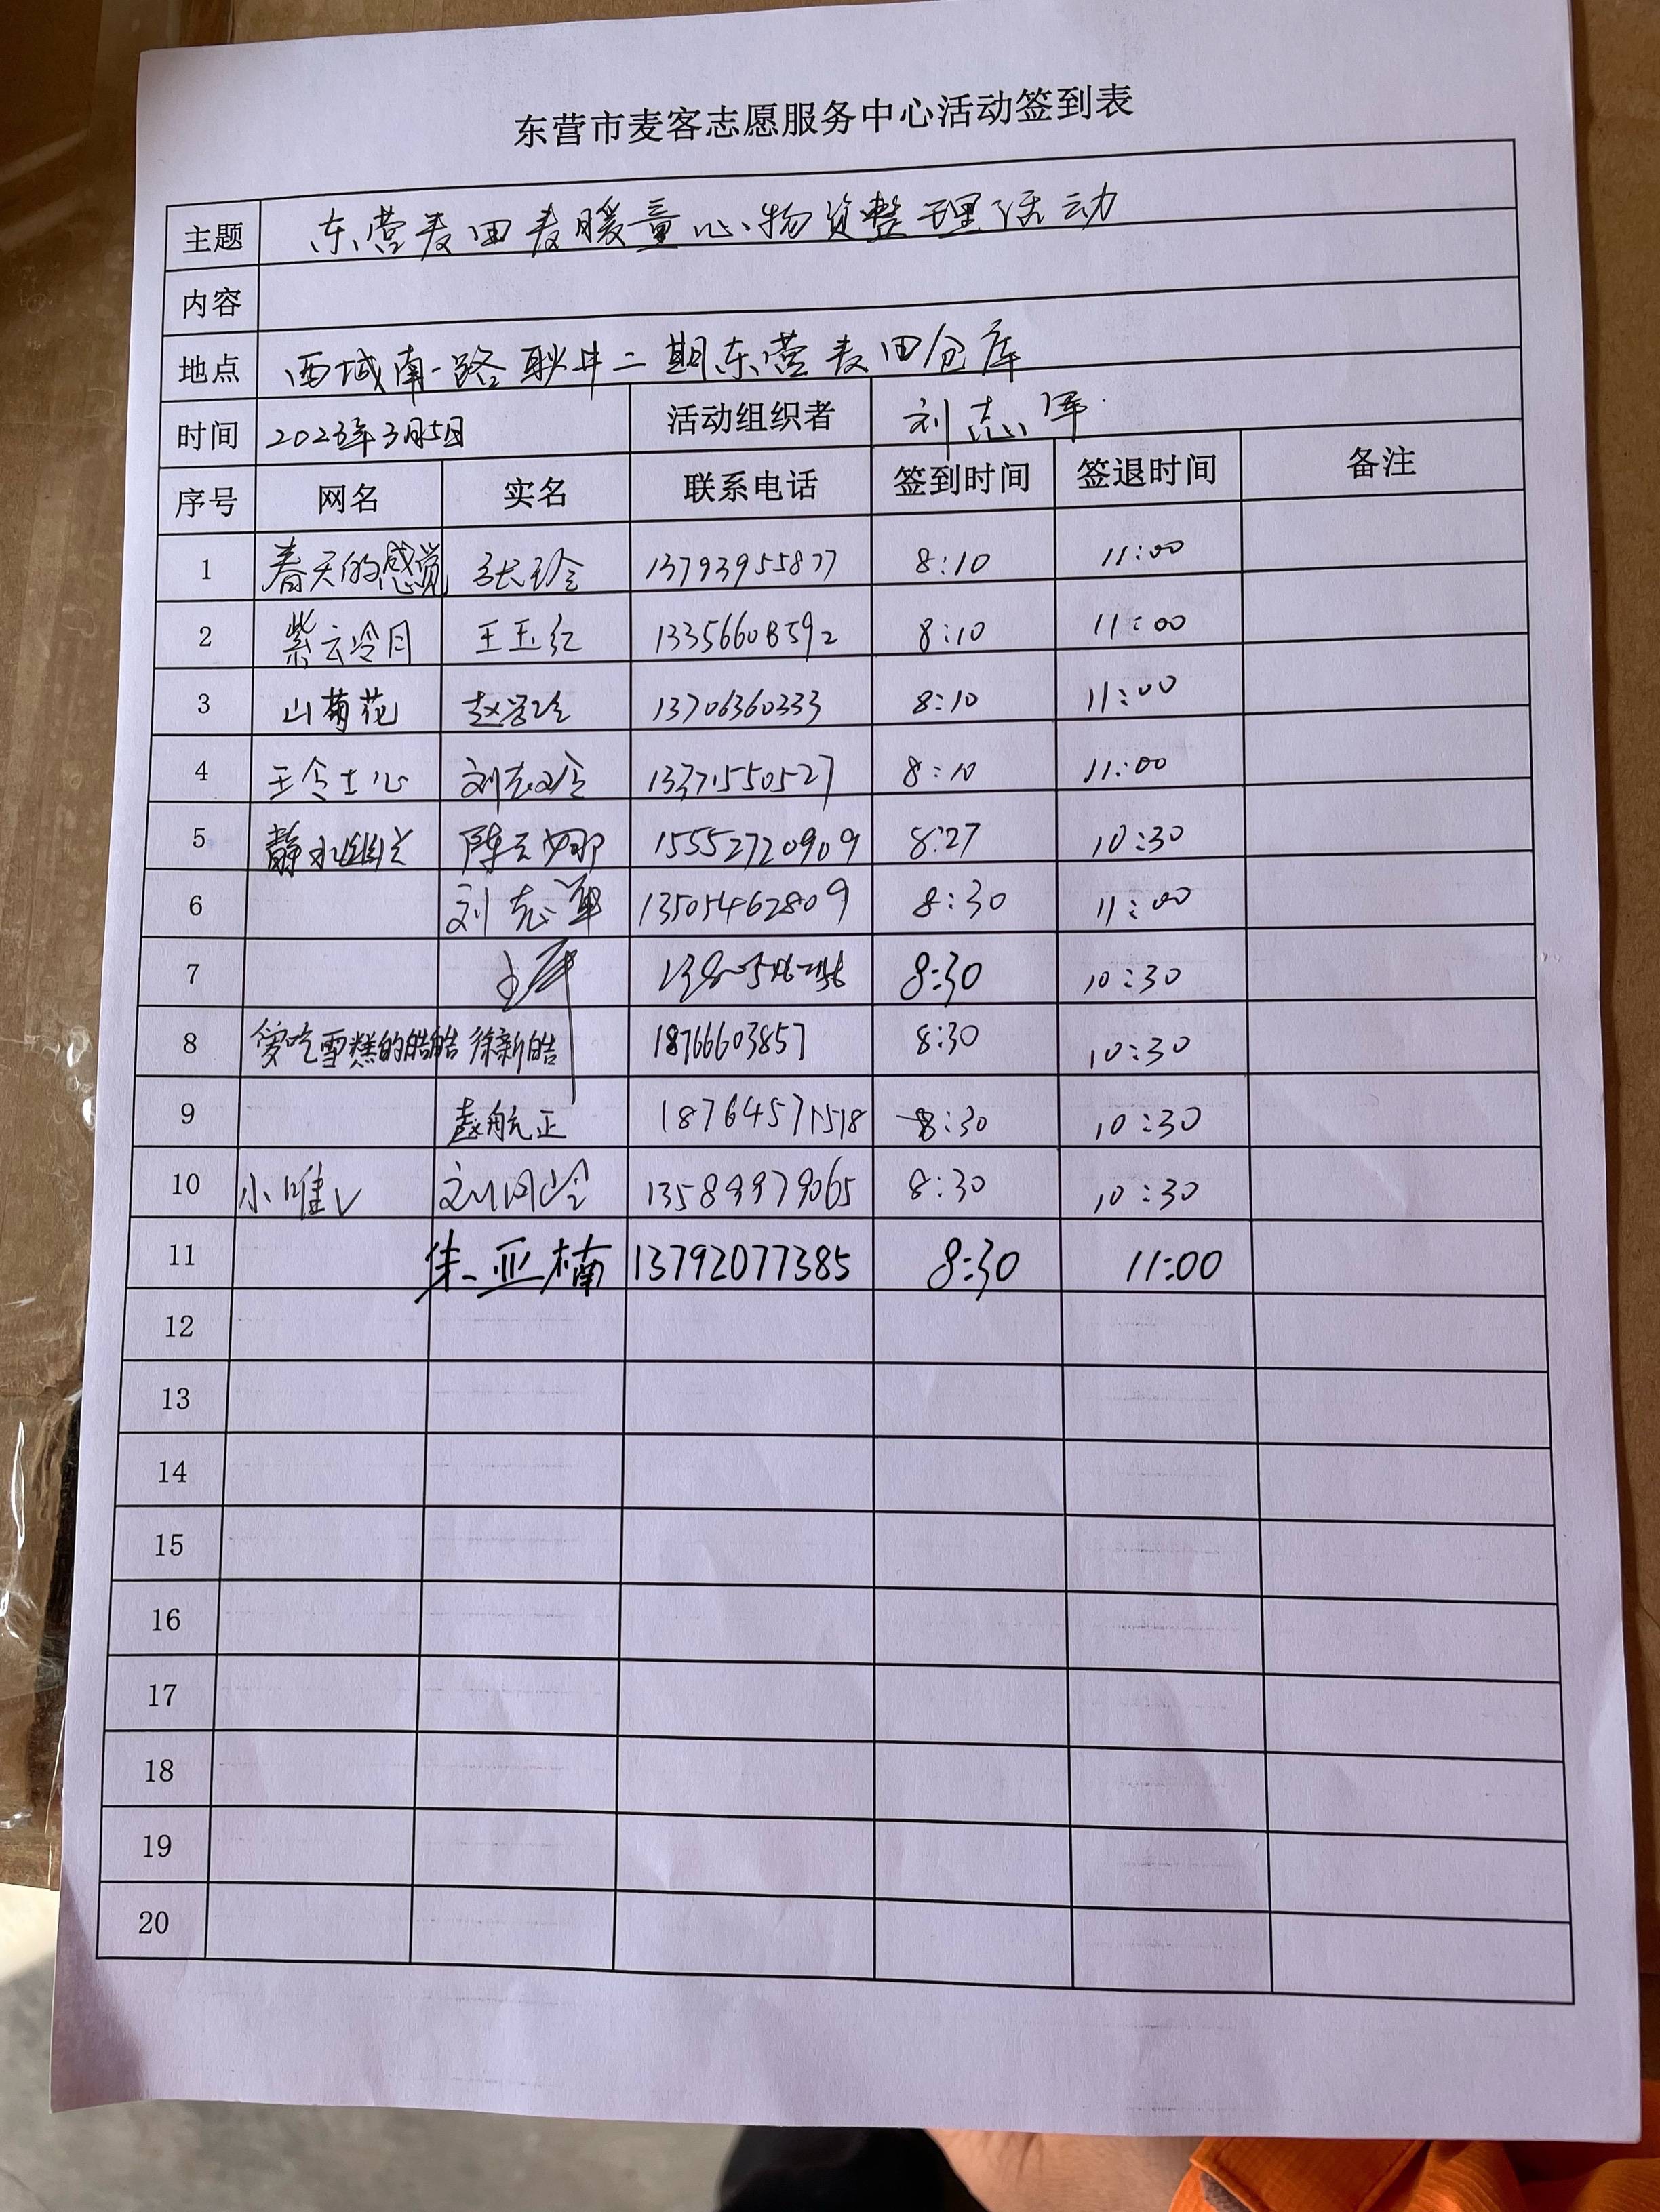 东营市麦客志愿服务中心活动签到表
主题 东营麦田麦暖童心物资整理活动
内容
地点 西城南一路耿井二期东营麦田仓库
时间 2023年3月5日 活动组织者 刘志军
序号 网名 实名 联系电话 签到时间 签退时间 备注
1 春天的感觉 张玲 13793955877 8:10 11:00
2 紫云冷月 王玉红 13356608592 8:10 11:00
3 山菊花 赵学玲 13706360333 8:10 11:00
4 王令士心 刘志玲 13371550527 8:10 11:00
5 静水幽兰 陈云娜 15552720909 8:27 10:30
6 刘志军 13505462809 8:30 11:00
7 8:30 10:30
8 爱吃雪糕的皓皓 徐新皓 18766603857 8:30 10:30
9 航正 18764571578 8:30 10:30
10 小唯 13589979065 8:30 10:30
11 朱亚楠 13792077385 8:30 11:00
12
13
14
15
16
17
18
19
20